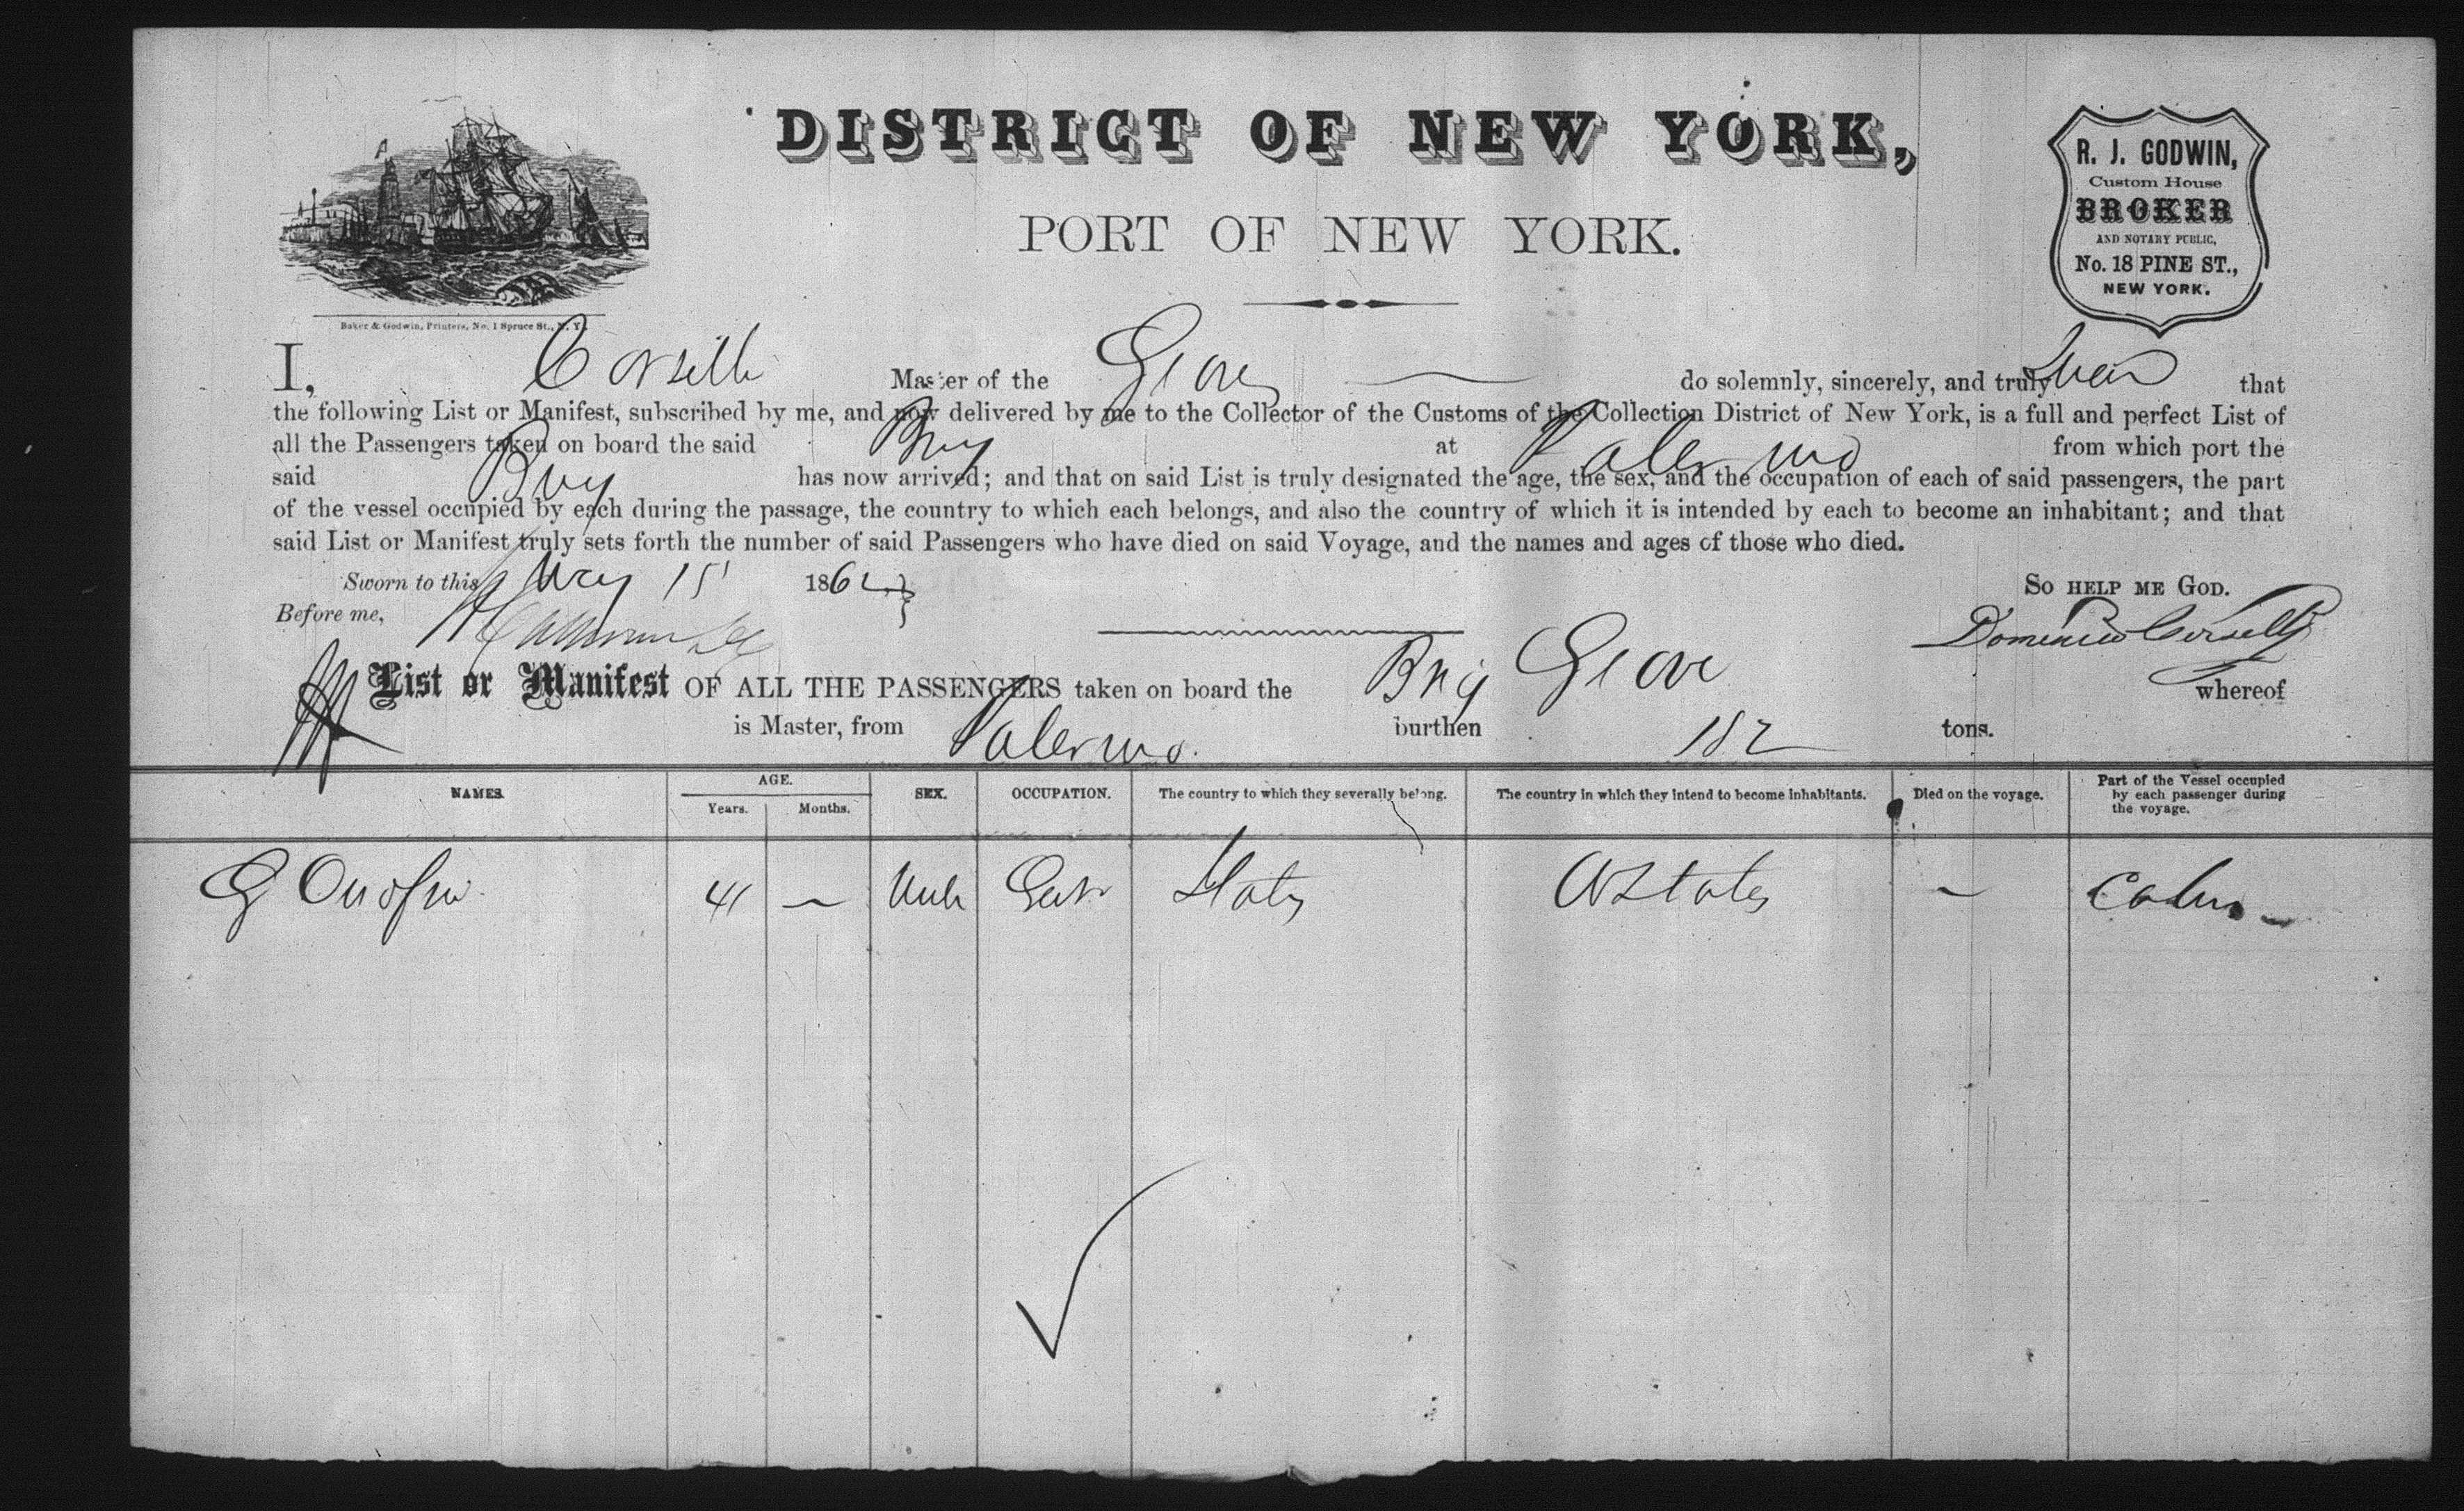 DISTRICT OF NEW YORK,
PORT OF NEW YORK.
R. J. GODWIN,
Custom House
BROKER
AND NOTARY PUBLIC,
No. 18 PINE ST.,
NEW YORK.
Baker & Godwin, Printers, No. 1 Spruce St., N. Y.
I, Corselli Master of the Giove do solemnly, sincerely, and truly swear that
the following List or Manifest, subscribed by me, and now delivered by me to the Collector of the Customs of the Collection District of New York, is a full and perfect List of
all the Passengers taken on board the said Brig at Palermo from which port the
said Brig has now arrived; and that on said List is truly designated the age, the sex, and the occupation of each of said passengers, the part
of the vessel occupied by each during the passage, the country to which each belongs, and also the country of which it is intended by each to become an inhabitant; and that
said List or Manifest truly sets forth the number of said Passengers who have died on said Voyage, and the names and ages of those who died.
Sworn to this May 15 1862 So HELP ME GOD.
Before me, Domenico Corselli
List or Manifest OF ALL THE PASSENGERS taken on board the Brig Giove whereof
is Master, from Palermo. burthen 182 tons.
NAMES. AGE. Years. Months. SEX. OCCUPATION. The country to which they severally belong. The country in which they intend to become inhabitants. Died on the voyage. Part of the Vessel occupied by each passenger during the voyage.
G Onofrio 41 — Male Gent Italy U States — Cabin